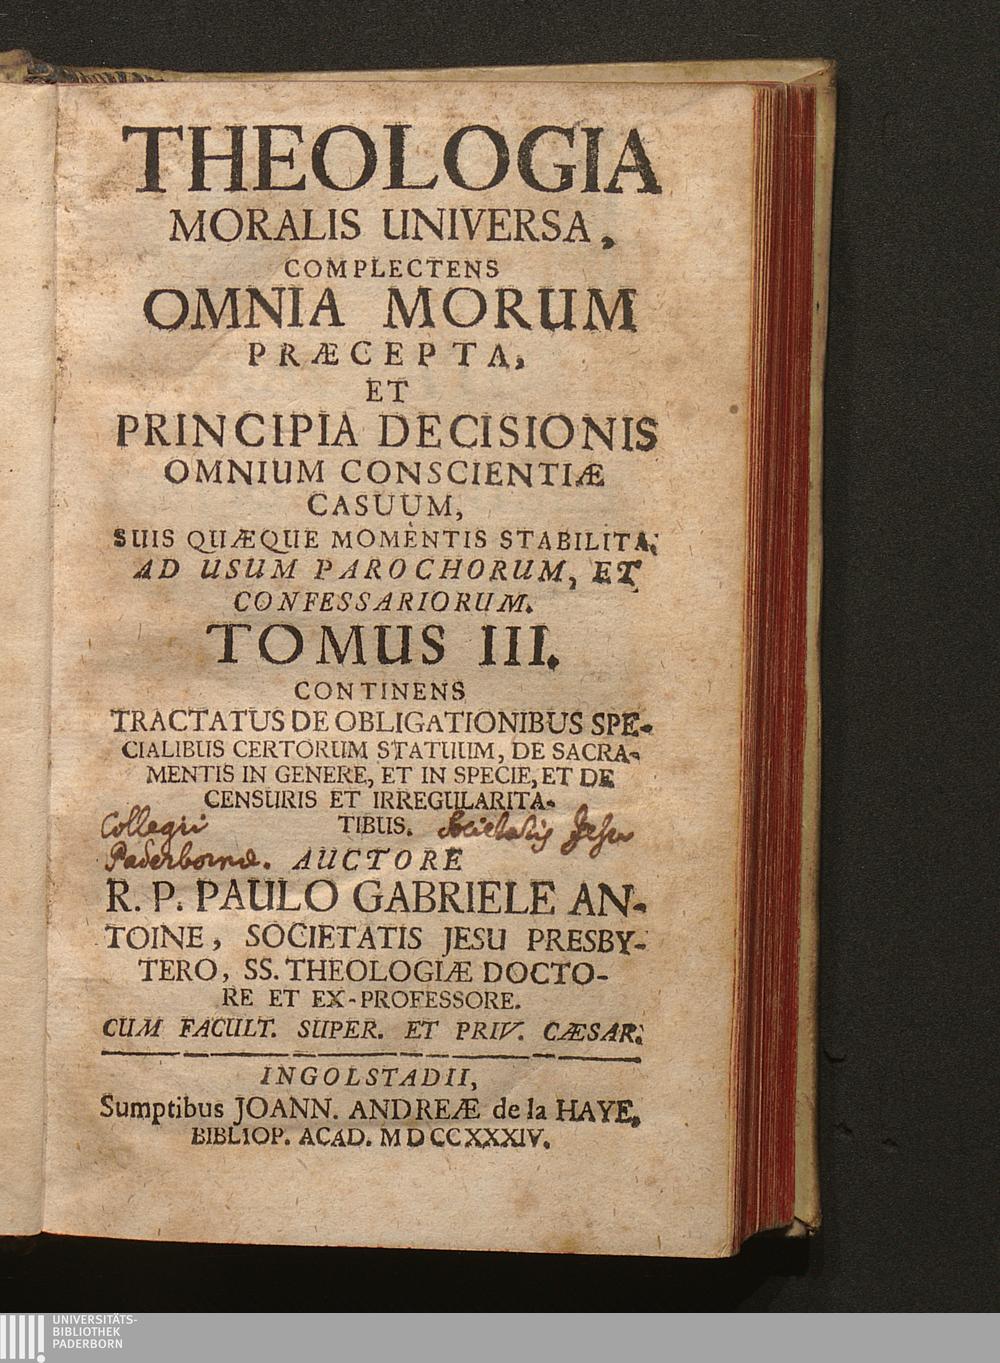 THEOLOGIA
MORALIS UNIVERSA,
COMPLECTENS
OMNIA MORUM
PRÆCEPTA,
ET
PRINCIPIA DECISIONIS
OMNIUM CONSCIENTIÆ
CASUUM,
SUIS QUÆQUE MOMENTIS STABILITA;
AD USUM PAROCHORUM, ET
CONFESSARIORUM.
TOMUS III.
CONTINENS
TRACTATUS DE OBLIGATIONIBUS SPE-
CIALIBUS CERTORUM STATUUM, DE SACRA-
MENTIS IN GENERE, ET IN SPECIE, ET DE
CENSURIS ET IRREGULARITA-
TIBUS.
Collegii Societatis Jesu
Paderbornæ.
AUCTORE
R. P. PAULO GABRIELE AN-
TOINE, SOCIETATIS JESU PRESBY-
TERO, SS. THEOLOGIÆ DOCTO-
RE ET EX-PROFESSORE.
CUM FACULT. SUPER. ET PRIV. CÆSAR.
INGOLSTADII,
Sumptibus JOANN. ANDREÆ de la HAYE,
BIBLIOP. ACAD. MDCCXXXIV.
UNIVERSITÄTS-
BIBLIOTHEK
PADERBORN